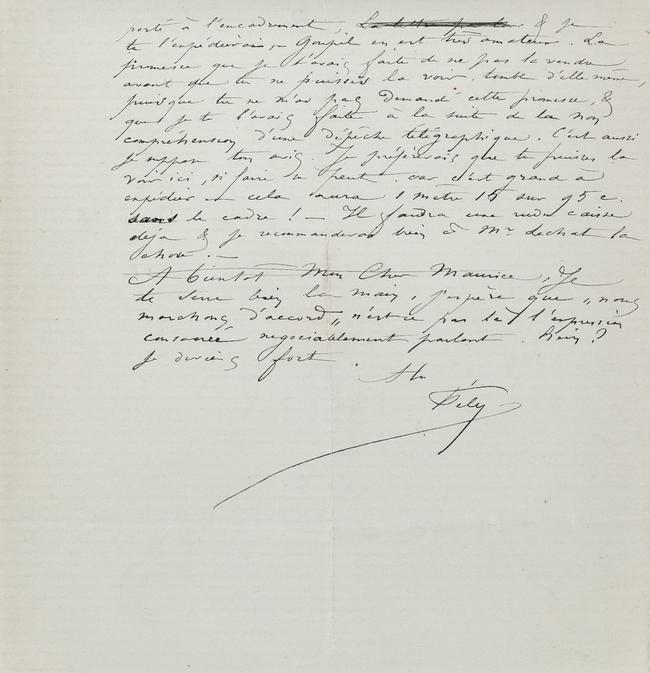 porté à l'encadrement, La lettre par la & je
te l'expédierais – Goupil en est très amateur. La
promesse que je t'avais faite de ne pas la vendre
avant que tu ne puisses la voir, tombe d'elle même,
puisque tu ne m'as pas demandé cette promesse, &
que je te l'avais faite à la suite de la non
compréhension d'une dépêche télégraphique. C'est aussi
je suppose ton avis. Je préférerais que tu puisses la
voir ici, si faire se peut. car c'est grand à
expédier – cela aura 1 mètre 15 sur 95 c.
sans le cadre ! – Il faudra une rude caisse
déjà & je recommanderai bien à Mr. dechat la
chose. –
A bientôt Mon Cher Maurice, Je
te serre bien la main, j'espère que „nous
marchons d'accord„ n'est ce pas là l'expression
consacrée négociablement parlant. hein ?
je deviens fort.
Fély